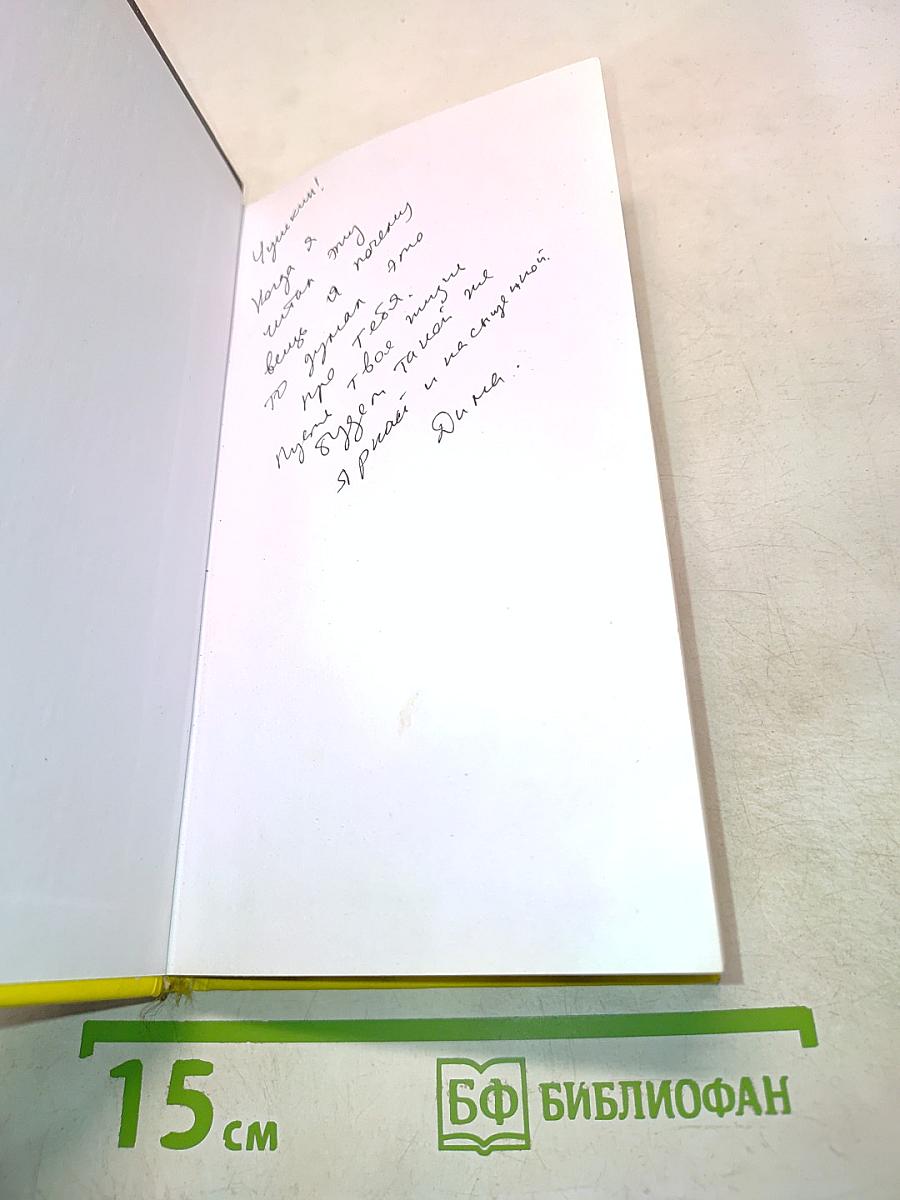 Чушкин!
Когда я
читал эту
вещь я почему
то думал это
про тебя.
Пусть твоя жизнь
будет такой же
яркой и насыщенной.
Дима..
15 см
БФ БИБЛИОФАН